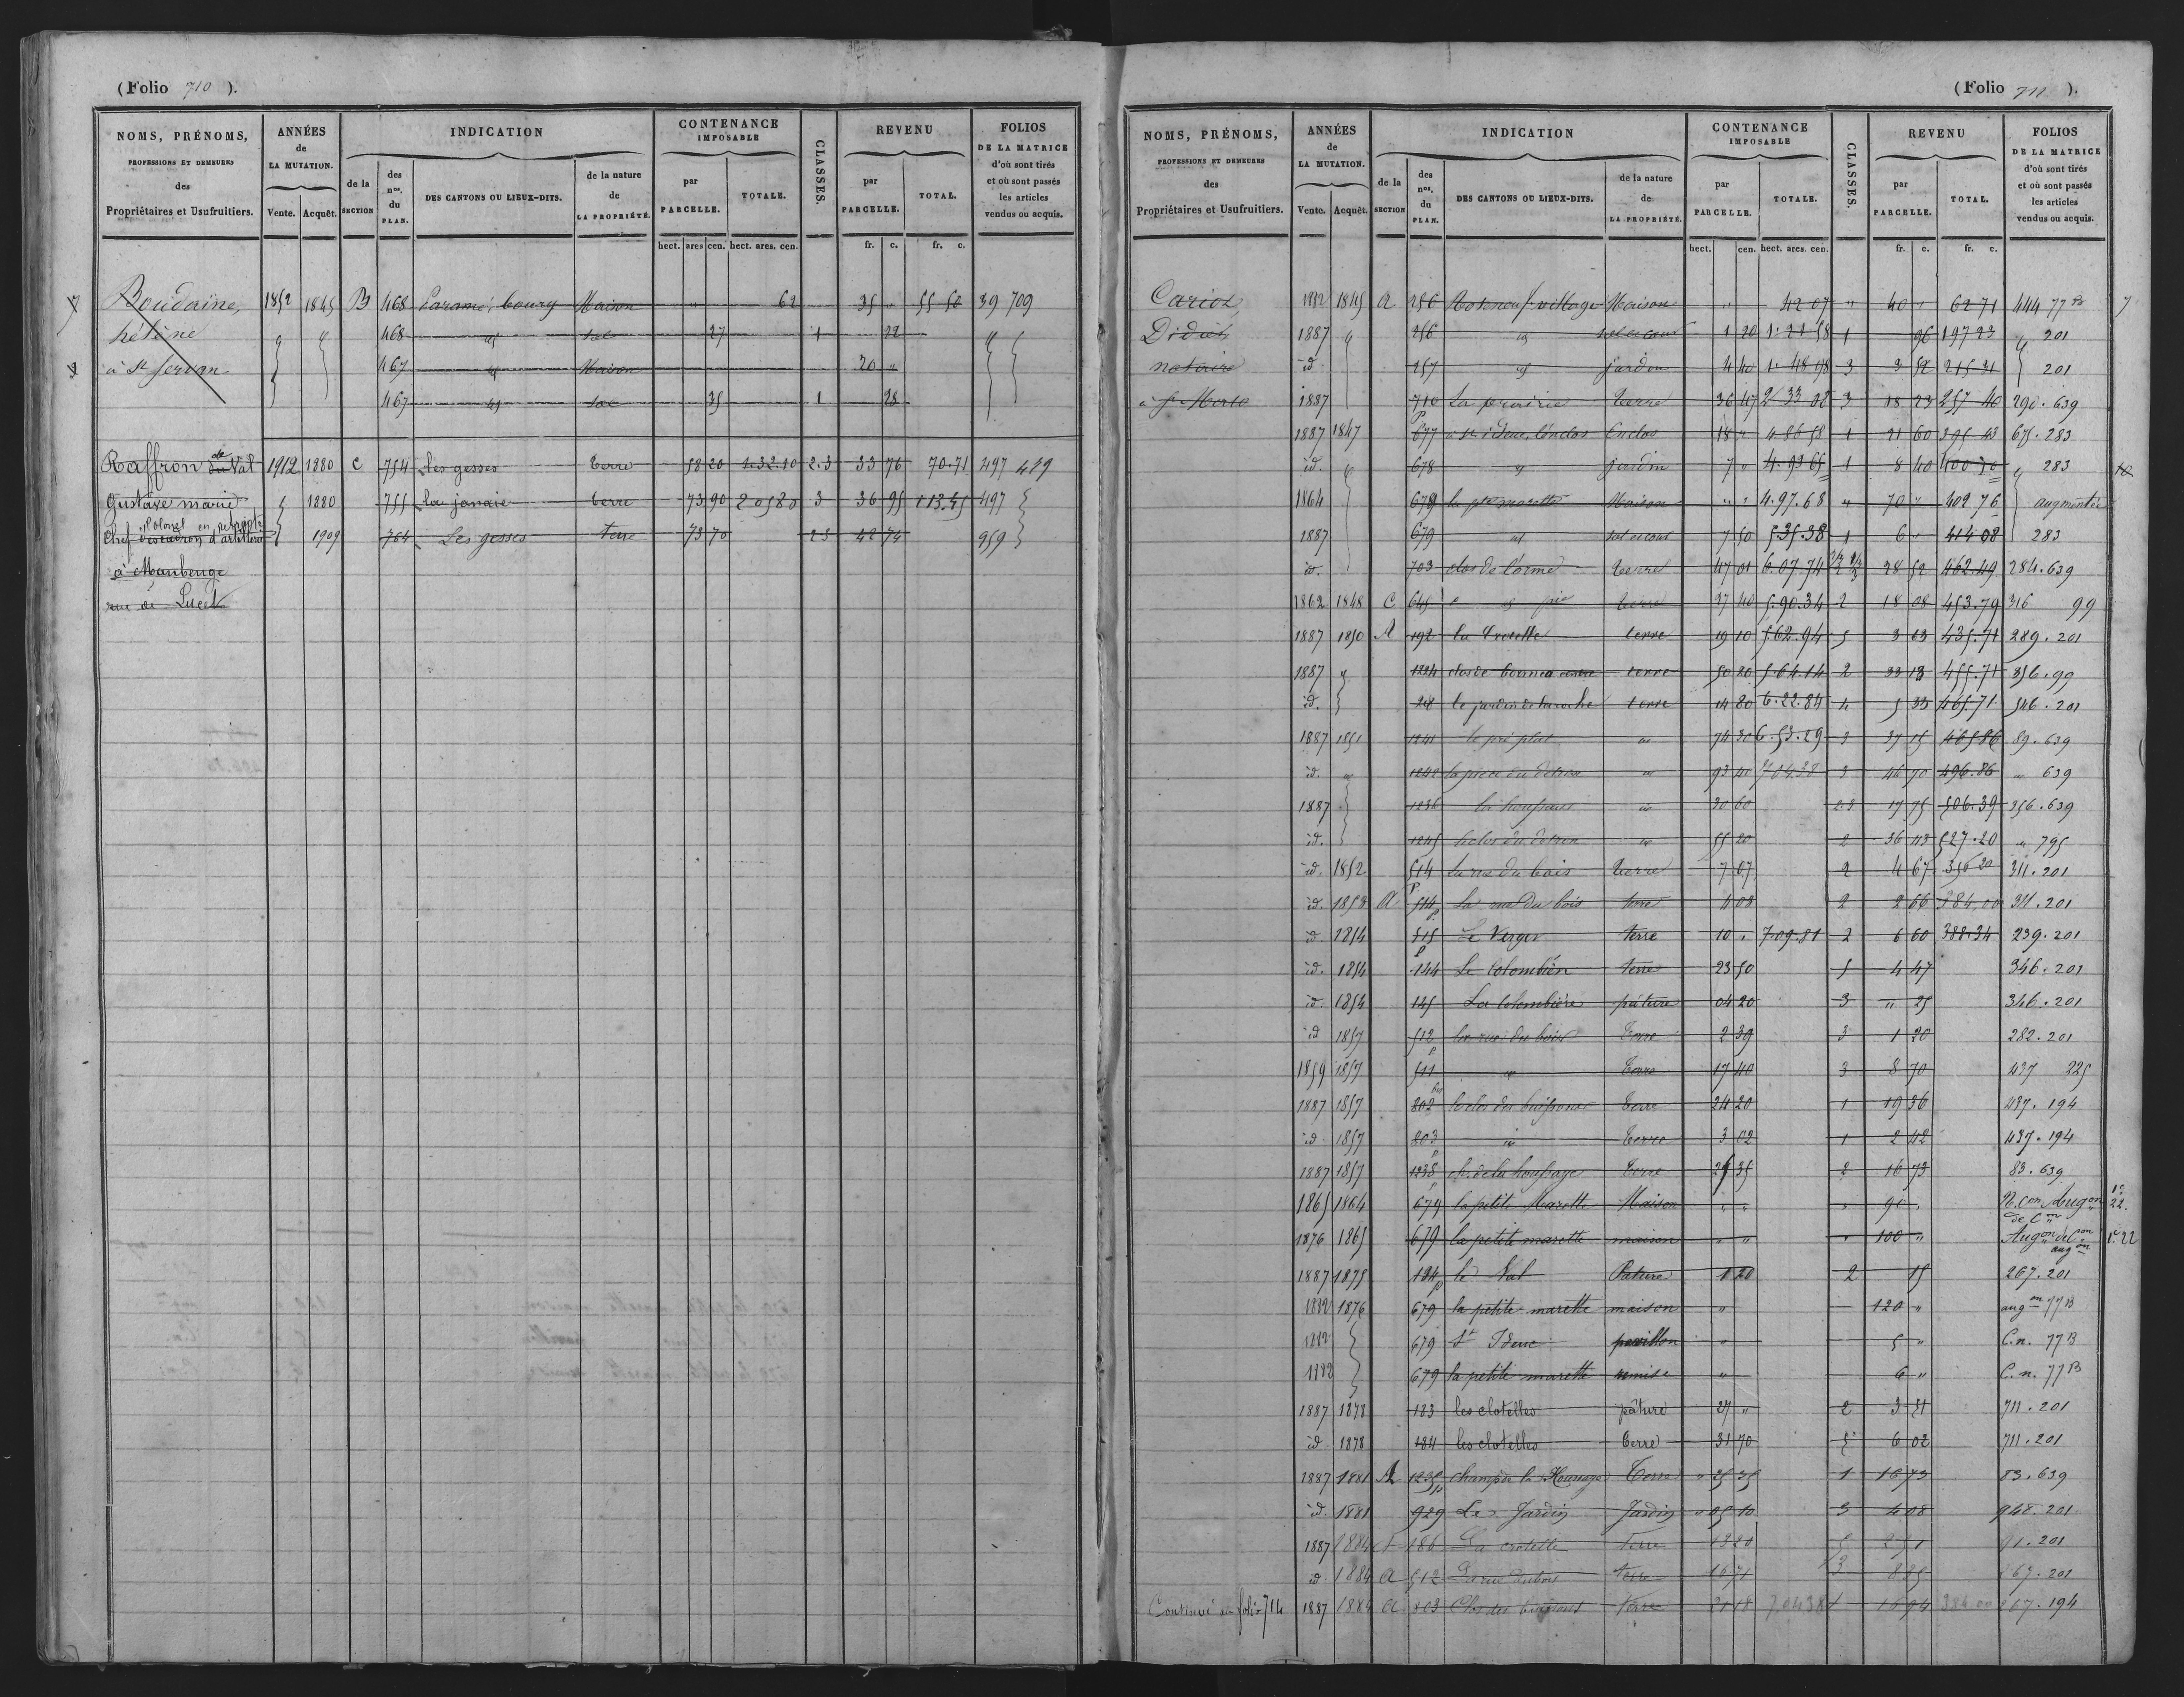 (Folio 710 ).
NOMS, PRÉNOMS,
PROFESSIONS ET DEMEURES
des
Propriétaires et Usufruitiers.
ANNÉES
de
LA MUTATION.
Vente. Acquêt.
INDICATION
de la
SECTION
des
nos.
du
PLAN.
DES CANTONS OU LIEUX-DITS.
de la nature
de
LA PROPRIÉTÉ.
CONTENANCE
IMPOSABLE
par
PARCELLE.
TOTALE.
CLASSES.
REVENU
par
PARCELLE.
TOTAL.
FOLIOS
DE LA MATRICE
d'où sont tirés
et où sont passés
les articles
vendus ou acquis.
hect. ares cen. hect. ares. cen. fr. c. fr. c.
Boudaine, 1852 1845 B 468 Paramé, bourg Maison " 62 35 " 55 50 39 709
hélène 468 id sol 27 1 22
à St Servan 467 id Maison 20 "
467 id sol 35 1 28
Raffron de du Val 1912 1880 C 754 Les gesses terre 58 20 1.32.10 2.3 33 76 70.71 497 419
Gustave marie 1880 755 la janaie terre 73 90 2 05 80 3 36 95 113.45 497
Colonel en retraite
Chef d'escadron d'artillerie 1909 764 Les gesses terre 73 70 2 3 42 74 959
à Maubeuge
rue de Lucet
(Folio 711 ).
NOMS, PRÉNOMS,
PROFESSIONS ET DEMEURES
des
Propriétaires et Usufruitiers.
ANNÉES
de
LA MUTATION.
Vente. Acquêt.
INDICATION
de la
SECTION
des
nos.
du
PLAN.
DES CANTONS OU LIEUX-DITS.
de la nature
de
LA PROPRIÉTÉ.
CONTENANCE
IMPOSABLE
par
PARCELLE.
TOTALE.
CLASSES.
REVENU
par
PARCELLE.
TOTAL.
FOLIOS
DE LA MATRICE
d'où sont tirés
et où sont passés
les articles
vendus ou acquis.
hect. cen. hect. ares. cen. fr. c. fr. c.
Cariot 1882 1845 A 256 Rotheneuf village Maison " 42 07 " 40 " 62 71 444 77 B
Didier 1887 256 id sol et cour 1 20 1.21 58 1 96 197 23 201
notaire id 257 id jardin 4 40 1.48 98 3 3 52 215 31 201
à St Malo 1887 710 La prairie terre 36 47 2 33 08 3 18 23 257 40 290.639
1887 1847 677 à st ideuc, l'enclos Enclos 18 " 4 86 58 1 21 60 395 43 675.283
id. 678 jardin 7 " 4.93 65 1 8 40 400 30 283
1864 679 la pte marette Maison " " 4.97.68 " 70 " 409 76 augmentée
1887 679 id sol et cour 7 50 5.35.38 1 6 " 414 08 283
id. 703 clos de l'orme terre 47 01 6.07.74 28 52 462.49 284.639
1862 1848 C 645 terre 27 40 5.90.34 2 18 08 453.79 316 99
1887 1850 A 192 la Crotelle terre 19 10 5.62.94 5 3 63 435.71 289.201
1887 1224 terre 50 20 5.64.14 2 33 13 455.71 356.99
id. 28 le jardin de la roche terre 14 80 6.22.84 4 5 33 465.71 546.201
1887 1851 1241 le pré plat id 74 30 6.53.29 3 37 15 465 86 89.639
id. 1242 la pièce du détroi id 93 40 7 04.38 3 46 70 496.86 " 639
1887 1236 la houssaie id 30 60 2.3 17 75 506.39 356.639
id. 1245 le clos du detroi id 55 20 2 36 43 527.20 " 795
id. 1852 514 La rue du bois terre 7 67 2 4 67 356 20 311.201
id. 1853 A 514 La rue du bois terre 4 03 2 2 66 384,00 311.201
id. 1854 515 Le Verger terre 10 " 7.09.81 2 6 60 388.34 239.201
id. 1854 144 Le Colombier terre 23 50 5 4 47 346.201
id. 1854 145 La Colombière pâture 04 20 3 " 25 346.201
id 1857 512 la rue du bois terre 2 39 3 1 20 282.201
1859 1857 511 id terre 17 40 3 8 70 437 225
1887 1857 802 le clos des buissons terre 24 20 1 19 36 437.194
id 1857 803 id terre 3 02 1 2 42 437.194
1887 1857 1238 ch. de la houssaye terre 25 35 2 16 73 83.639
1865 1864 679 la petite Marette Maison " " " 90 " N. Con Augon 1e 22.
de Con
1876 1865 679 la petite marette maison " " " 100 " Augon de Con 1e 22
augon
1887 1875 194 le Val Pature 1 20 2 15 267.201
1882 1876 679 la petite marette maison " 120 " augon 77 B
1882 679 St Ideuc pavillon " 5 " C.n. 77 B
1882 679 la petite marette remise " 6 " C.n. 77 B
1887 1878 183 les clotelles pâture 27 " 2 3 51 711.201
id 1878 184 les clotelles terre 31 70 5 6 02 711.201
1887 1881 A 1235 champ de la Houssaye Terre " 25 35 1 16 73 83.639
id. 1881 929 Le Jardin Jardin " 05 10 3 4 08 948.201
1887 1884 A 186 La crotelle Terre 13 20 5 2 51 91.201
id. 1884 A 512 La rue du bois terre 16 71 3 8 35 67.201
Continué au folio 714 1887 1884 A 803 Clos des buissons Terre 21 18 7.04 38 1 16 94 384 00 67.194